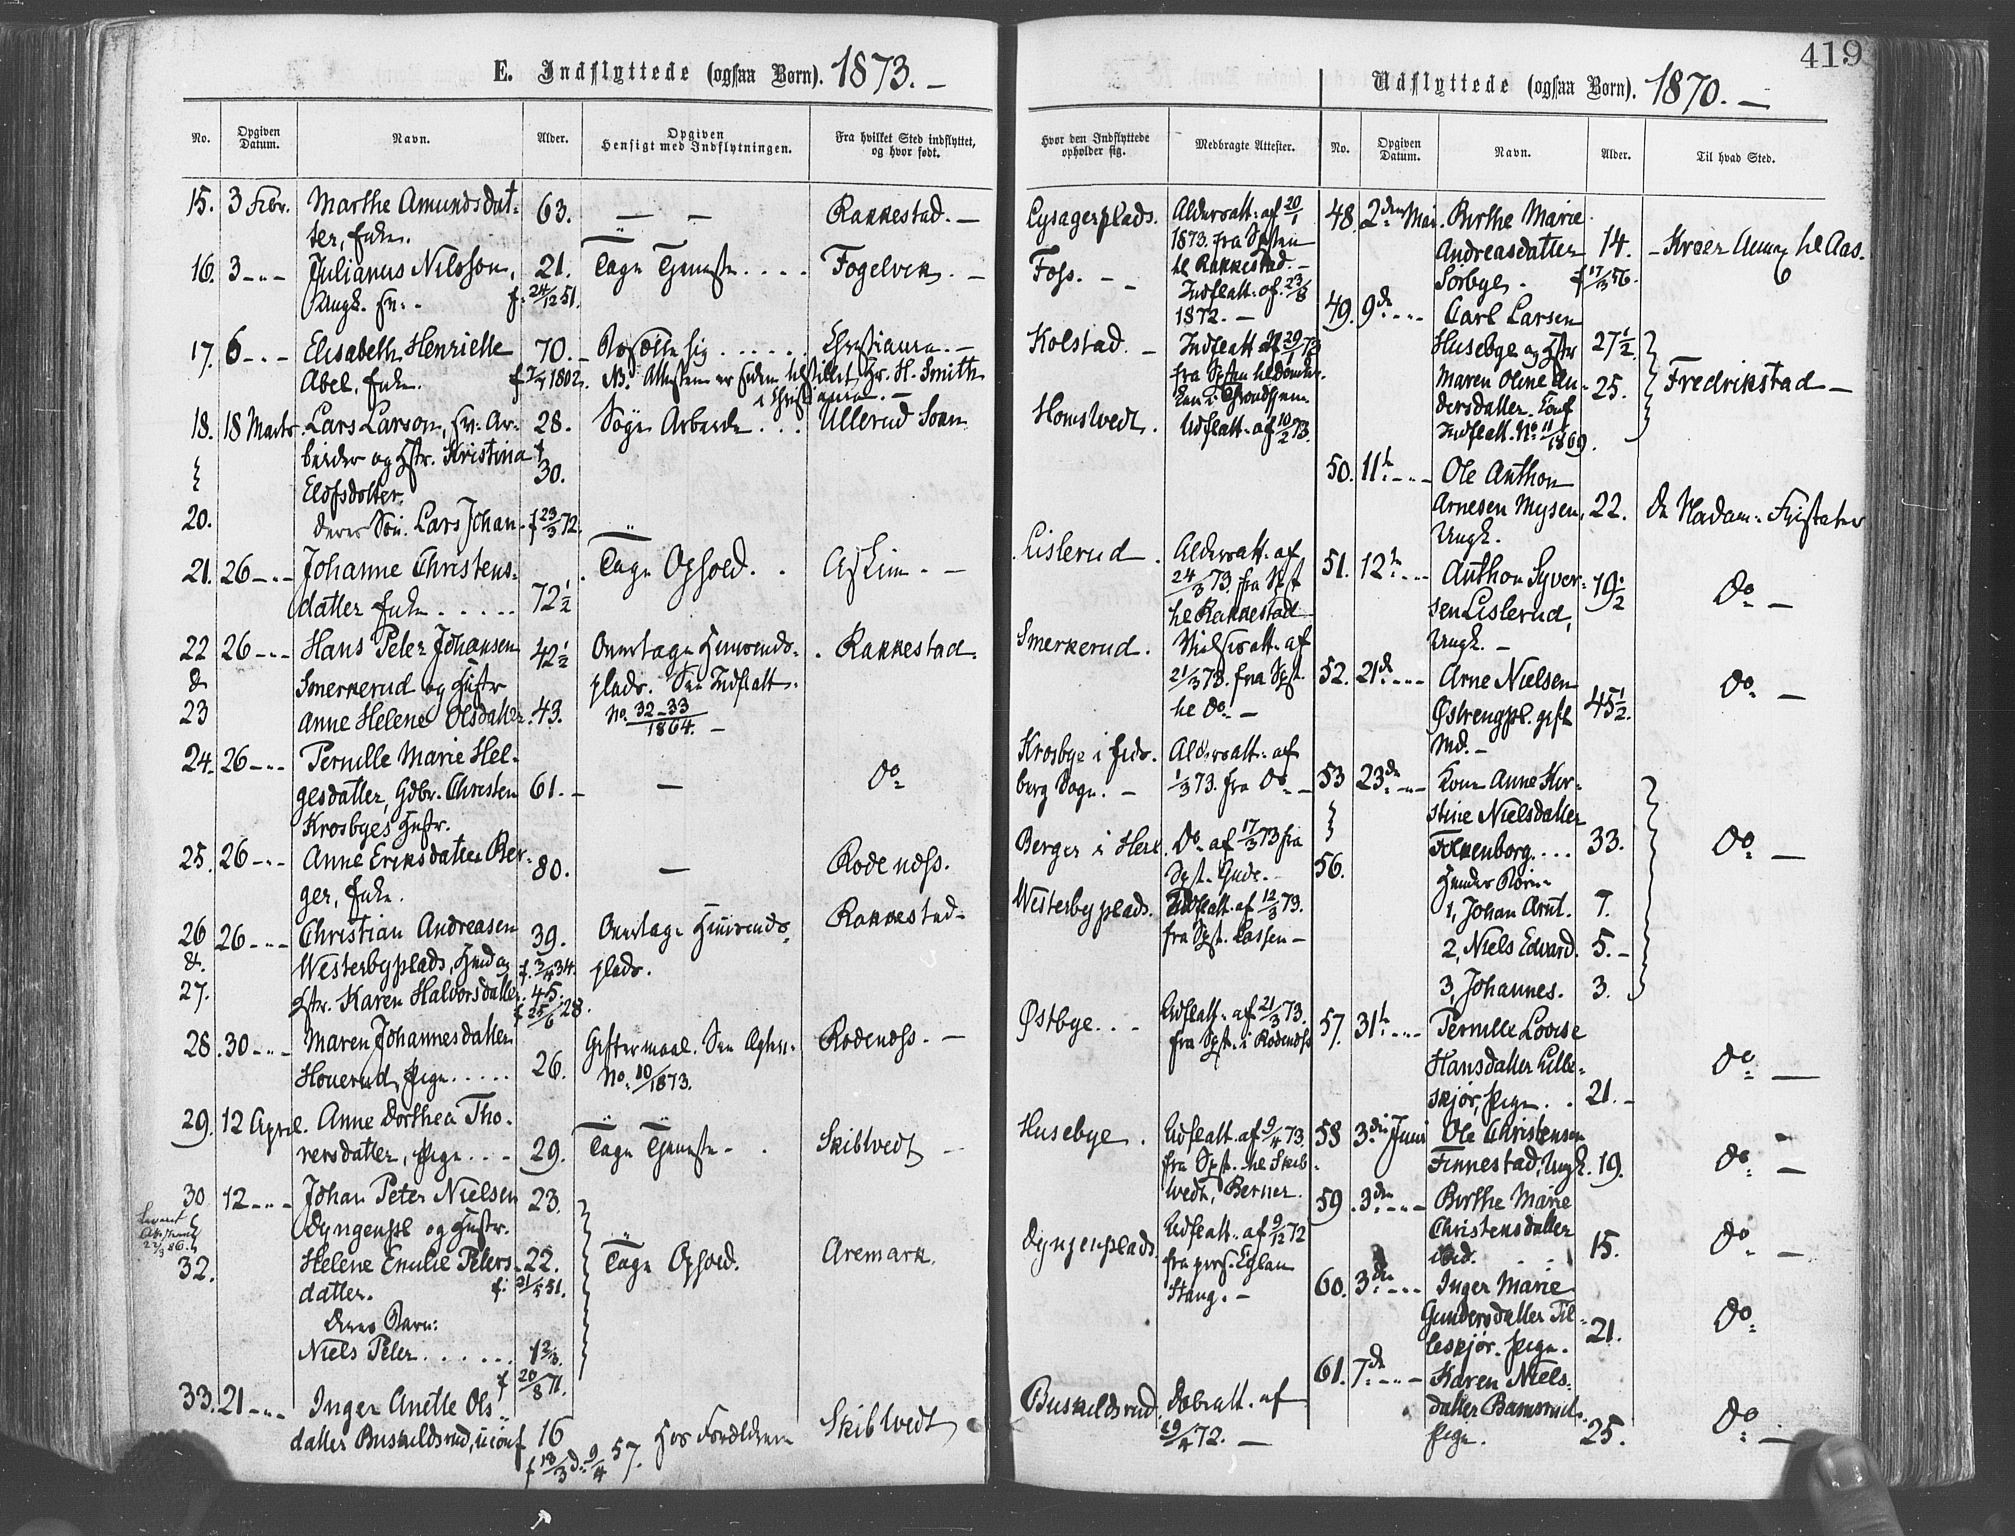 419
E. Indflyttede (ogsaa Børn). 1873. —
No.
Opgiven Datum.
Navn.
Alder.
Opgiven Hensigt med Indflytningen.
Fra hvilket Sted indflyttet, og hvor født.
Hvor den Indflyttede opholder sig.
Medbragte Attester.
15. 3 Febr. Marthe Amundsdat- 63. — — Rakkestad. — Lysagerplads. Aldersatt. af 20/1
ter, Enke. 1873. fra Spten
16. 3 - „ - Julianus Nilsson, 21. Tage Tjeneste . . . . Fogelvik. — Foss. - - til Rakkestad. —
Ungk. Sv. - f. 24/12 51. Indflatt. af 23/8
1872. —
17. 6 - „ - Elisabeth Henriette 70. Bosætte sig . . . . . . Christiania. — Kolstad. — Indflatt.
Abel, Enke. f 7/4 1802. NB. Attesten er siden tilstillet Hr. H. Smith fra Spten
i Christiania. —
18. 18 Marts. Lars Larson, Sv. Ar- 28. Søge Arbeide . . . Ullerud Soen Homstvedt. Udflatt. af 10/2 73.
beider og Hstr. Kristina
30.
Elofsdotter.
20. deres Søn. Lars Johan. f 23/3 72.
21. 26 - „ - Johanne Christens- Tage Ophold. . . Askim. - — Lislerud . Aldersatt. af
datter Enke . . . . . 72½ 24/3 73. fra Spst
til Rakkestad
22 26 - „ - Hans Peter Johansen 42½ Overtage Huusmds- . Rakkestad. Smerkerud . Vielsesatt. af
& Smerkerud og Hustr plads. See Indflatt. 21/3 73. fra Spst.
23 Anne Helene Olsdatter. 43. No. 32-33/1864. — til Do. —
24. 26 - „ - Pernille Marie Hel- Krosbye i Eids- Aldersatt. af
gesdatter, Gdbr. Christen 61. - — Do berg Sogn. — 1/3 73. fra Do —
Krosbyes Hustr.
25. 26 - „ - Anne Eriksdatter Ber- 80. — Rodenæs. Berger i Herl. Do. af 17/3 73 fra
ger, Enke. Spst. Gude. -
26 26 - „ - Christian Andreasen 39. Overtage Huusmds- Rakkestad - Westerbyplads. Udflatt. af 12/3 73.
&. Westerbyplads, Hmd og f. 3/4 34. plads. fra Spst. Lassen —
27. Hstr. Karen Halvorsdatter. 45. f 25/6 28.
28. 30 - „ - Maren Johannesdatter Giftermaal. See Rodenæs. — Østbye. . . Udflatt. af 21/3 73.
Houerud, Pige . . . . . 26. No. 10/1873. fra Spst. i Rodenæs
29. 12 April. Anne Dorthea Tho- Husebye . Udflatt. af 9/4 73
rersdatter, Pige . . - 29. Tage Tjeneste - . Skibtvedt — fra Spst. til Skib-
tvedt, Berner.
30 12 - „ - Johan Peter Nielsen 23.
Dyngenpl og Hustr. Udflatt. af 9/12 72
22/3 86.
32. Helene Emilie Peters- 22. Tage Ophold. Aremark. Dyngenplads. fra pers. Capellan
datter. f. 21/5 51. Stang. —
deres Barn:
Niels Peter . . . . . . 1⅔.
f 20/8 71.
33. 21 - „ - Inger Anette Ols- Buskuldsrud. Dobsatt. af
datter Buskuldsrud, uconf 16 Hos Forældrene Skibtvedt 29/4 72. —
f 18/3 d. 9/4 57.
Udflyttede (ogsaa Børn). 1870. —
No.
Opgiven Datum.
Navn.
Alder.
Til hvad Sted.
48. 2den Mai. Birthe Marie
Andreasdatter 14. - Kroer Annex til Aas.
Sørbye. f 17/3 56.
49. 9de - „ - Carl Larsen
Husebye og Hstr 27½
Maren Oline An- 25. Fredrikstad —
dersdatter. Conf
Indflatt. No. 11/1869.
50. 11te - „ - Ole Anthon
Arnesen Mysen, 22. De Nordam. Fristater
Ungk.
51. 12te - „ - Anthon Syver- 19½ Do —
sen Lislerud,
Ungk. —
52. 21de - „ - Arne Nielsen Do. —
Østrengpl. gift 45½.
Md. —
53 23de - „ - Kone Anne Kir-
stine Nielsdatter
Folkenborg . . . . 33. Do. —
56. Hendes Børn -
1, Johan Arnt. 7.
2, Niels Edvard. 5. -
3, Johannes. 3.
57. 31te - „ - Pernille Lovise
Hansdatter Lille- Do. —
skjør, Pige . . 21. -
58 3die Juni Ole Christensen
Finnestad, Ungk. 19. Do. —
59. 3die - „ - Birthe Marie
Christensdatter Do. —
ibid. . . 15.
60. 3die - „ - Inger Marie
Gundersdatter Lil- 21. Do.
leskjør. Pige.
61. 7de - „ - Karen Niels-
datter Bamsrud. Do. —
Pige. 25.